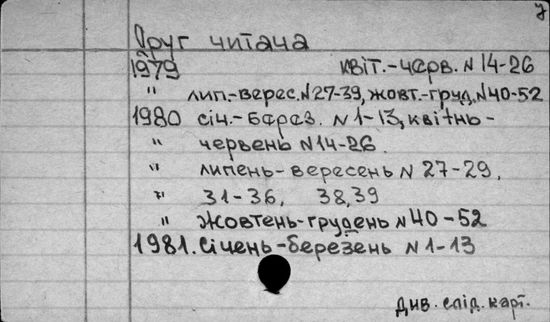 7
Друг читача
1979 квіт.-черв. N 14-26
" лип.-верес. N 27-39, жовт.-груд. N 40-52
1980 січ.-берез. N 1-13, квітнь-
" червень N 14-26.
" липень-вересень N 27-29,
" 31-36, 38,39
" жовтень-грудень N 40-52
1981. січень-березень N 1-13
Див. слід. карт.